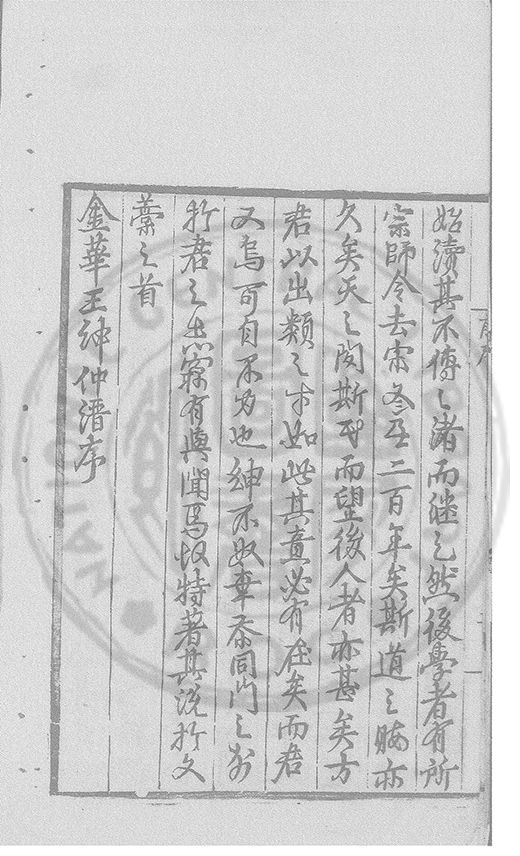 始瀆其不傳之緒而繼之然後學者有所
宗師今去宋又二百年矣斯道之晦亦
久矣天之閔斯民而望後人者亦甚矣方
君以出類之才如此其意必有在矣而君
又烏可自不力也紳不敏辱忝同門之好
於君之志竊有與聞焉故特著其說於文
藁之首
金華王紳仲潛序